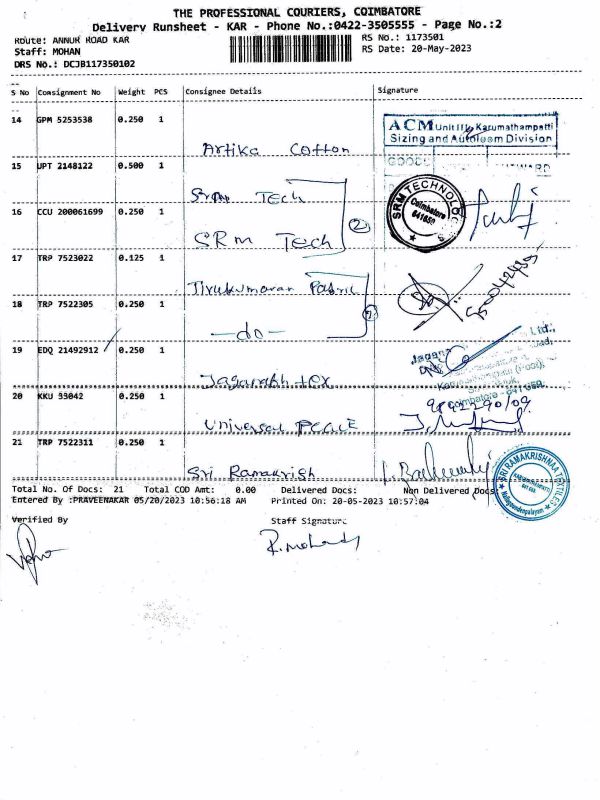 THE PROFESSIONAL COURIERS, COIMBATORE
Delivery Runsheet - KAR - Phone No.:0422-3505555 - Page No.:2
Route: ANNUR ROAD KAR
RS No.: 1173501
Staff: MOHAN
RS Date: 20-May-2023
DRS No.: DCJB117350102
S No Consignment No Weight PCS Consignee Details Signature
14 GPM 5253538 0.250 1
Artika Cotton
ACM Unit III, Karumathampatti
Sizing and Autoloom Division
15 UPT 2148122 0.500 1
SRM Tech
16 CCU 200061699 0.250 1
SRM Tech
2
SRM TECHNOLOG
Coimbatore
641659
17 TRP 7523022 0.125 1
Tirukumaran Fabric
18 TRP 7522305 0.250 1
-do-
19 EDQ 21492912 0.250 1
Ltd.,
Coimbatore - 641 659
20 KKU 33042 0.250 1
Universal
21 TRP 7522311 0.250 1
Sri Ramakrish
SRI RAMAKRISHNAA TEXTILES
Total No. Of Docs: 21 Total COD Amt: 0.00 Delivered Docs: Non Delivered Docs:
Entered By :PRAVEENAKAR 05/20/2023 10:56:18 AM Printed On: 20-05-2023 10:57:04
Verified By Staff Signature
R. Mohan